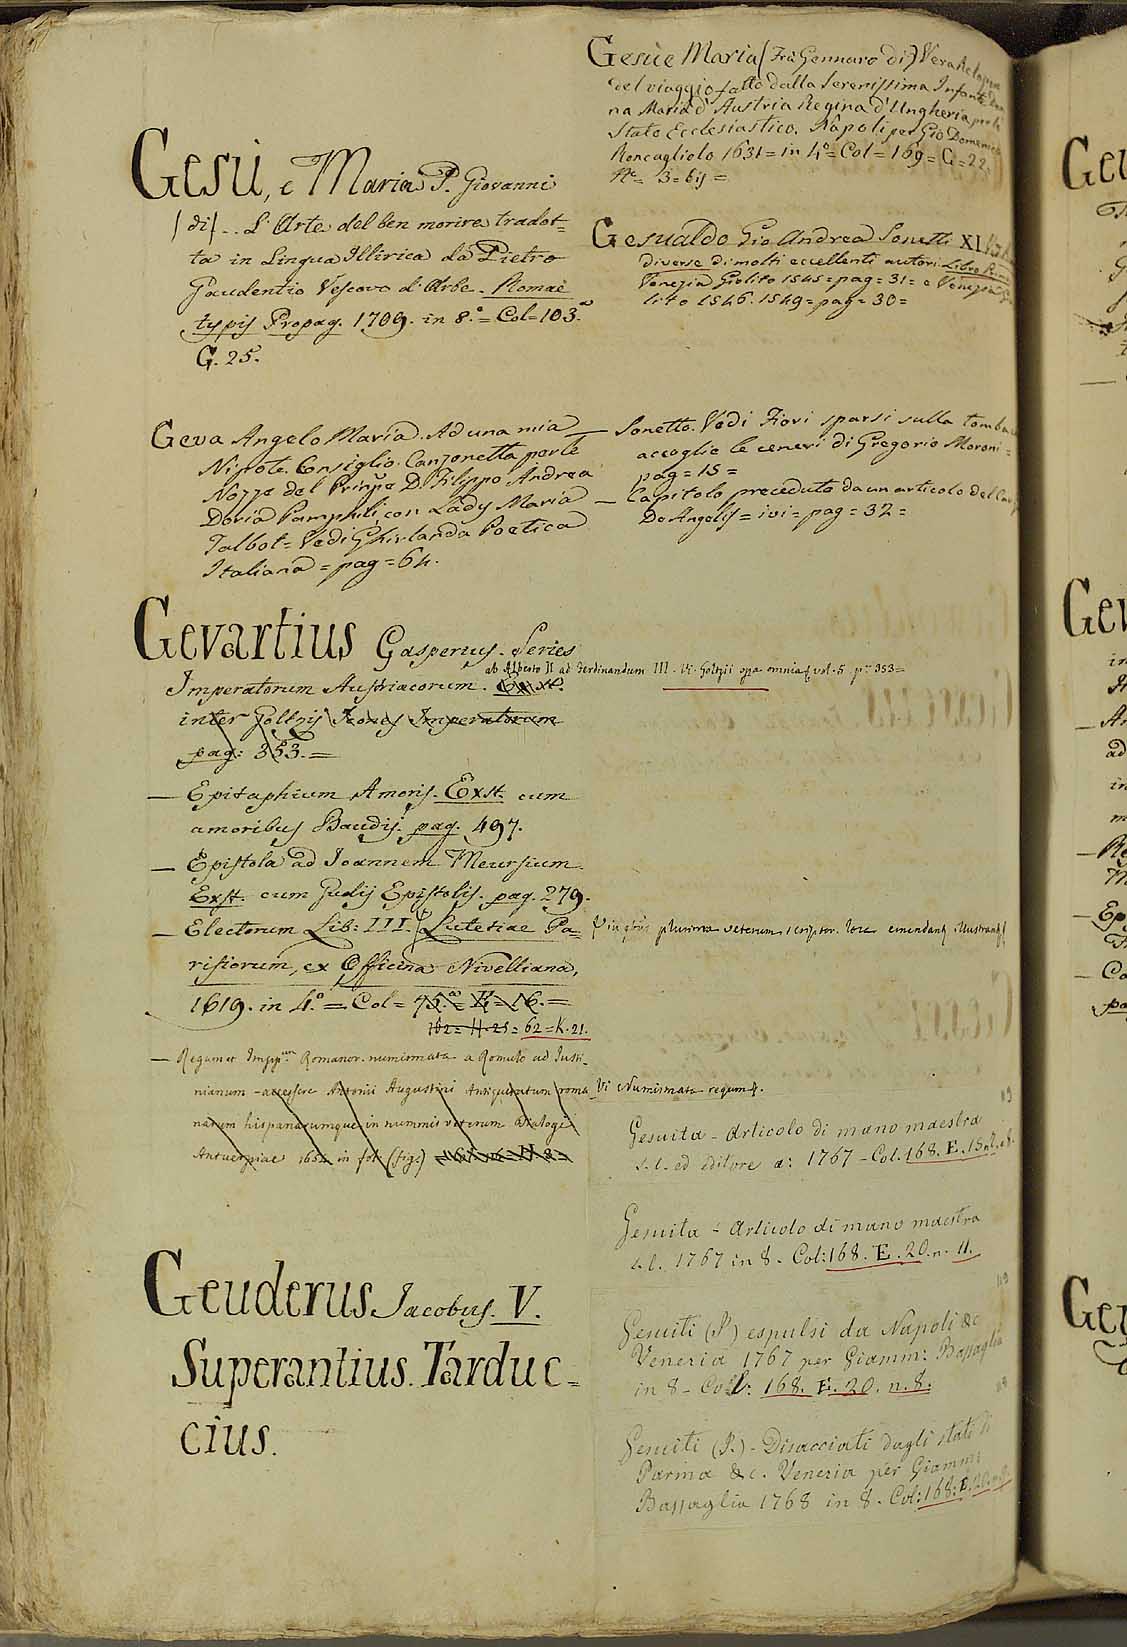 Gesù, e Maria P. Giovanni
(di).. L'Arte del ben morire tradot=
ta in Lingua Illirica da Pietro
Gaudentio Vescovo d'Arbe. Romae
typis Propag. 1709. in 8.° = Col = 103.
G. 25.
Geva Angelo Maria. Ad una mia
Nipote. Consiglio. Canzonetta per le
Nozze del Prinpe D. Filippo Andrea
Doria Pamphilj con Lady Maria
Talbot = Vedi Ghirlanda Poetica
Italiana = pag = 64.
Gevartius Gasperius. Series
ab Alberto II ad Ferdinandum III. Vi. Goltzii opa omnia vol. 5 p. 353 =
Imperatorum Austriacorum. Exst.
inter Goltzij Icones Imperatorum
pag: 353. =
— Epitaphium Amoris. Exst. cum
amoribus Baudij. pag. 497.
— Epistola ad Joannem Meursium.
Exst. cum Gudij Epistolis. pag. 279.
— Electorum Lib: III. Lutetiae Pa=
risiorum, ex Officina Nivelliana,
1619. in 4.° = Col = 75. = K = 16. =
162 = H. 25 = 62 = K. 21.
— Regum et Impp. Romanor. numismata a Romulo ad Justi_
nianum - accessere Antonii Augustini Antiquitatum roma_
narum hispanarumque in nummis veterum Dialogi
Antuerpiae 1654 in fol (fig.)
Geuderus Jacobus. V.
Superantius. Tarduc=
cius.
Gesù e Maria (Fra Gennaro di) Vera Relazione
del viaggio fatto dalla Serenissima Infante Don
na Maria d'Austria Regina d'Ungheria per lo
Stato Ecclesiastico. Napoli per Gio Domenico
Roncagliolo 1631 = in 4.° = Col = 169 = G = 22.
N.° = 3 = bis =
Gesualdo Gio Andrea Sonetti XI
diverse di molti eccellenti autori Libro Primo
Venezia Giolito 1545 = pag = 31 = e Venezia Gio
lito 1546. 1549 = pag = 30 =
— Sonetto. Vedi Fiori sparsi sulla tomba che
accoglie le ceneri di Gregorio Moroni =
pag = 15 =
— Capitolo preceduto da un articolo del
De Angelis = ivi = pag = 32 =
plurima veterum scriptor. loca emendant. illustrant.
Vi Numismata regum &.
Gesuita - Articolo di mano maestra
s. l. ed editore a: 1767 - Col. 168. E. 15
Gesuita - Articolo di mano maestra
s. l. 1767 in 8 - Col: 168. E. 20. n. 11.
Gesuiti (I) espulsi da Napoli &c
Venezia 1767 per Giamm: Bassaglia
in 8 - Col: 168. E. 20. n. 8.
Gesuiti (I.) - Discacciati dagli stati di
Parma &c. Venezia per Giamm:
Bassaglia 1768 in 8 - Col: 168: E. 20.